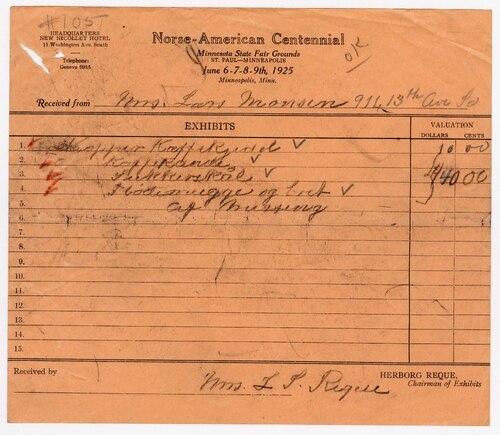 #1051
HEADQUARTERS
NEW NICOLLET HOTEL
11 Washington Ave. South
Telephone:
Geneva 8915
Norse-American Centennial
Minnesota State Fair Grounds
ST. PAUL—MINNEAPOLIS
June 6-7-8-9th, 1925
Minneapolis, Minn.
OK
Received from Mrs. Lars Monsen 914 13th Ave So
EXHIBITS
VALUATION
DOLLARS CENTS
1. Kopper Kaffekjedel ✓ 10 00
2. Kaffekande ✓
3. ✓ 40 00
4. Flödemugge og ✓
5. af Mesing
6.
7.
8.
9.
10.
11.
12.
13.
14.
15.
Received by Mrs. L. S. Reque
HERBORG REQUE,
Chairman of Exhibits